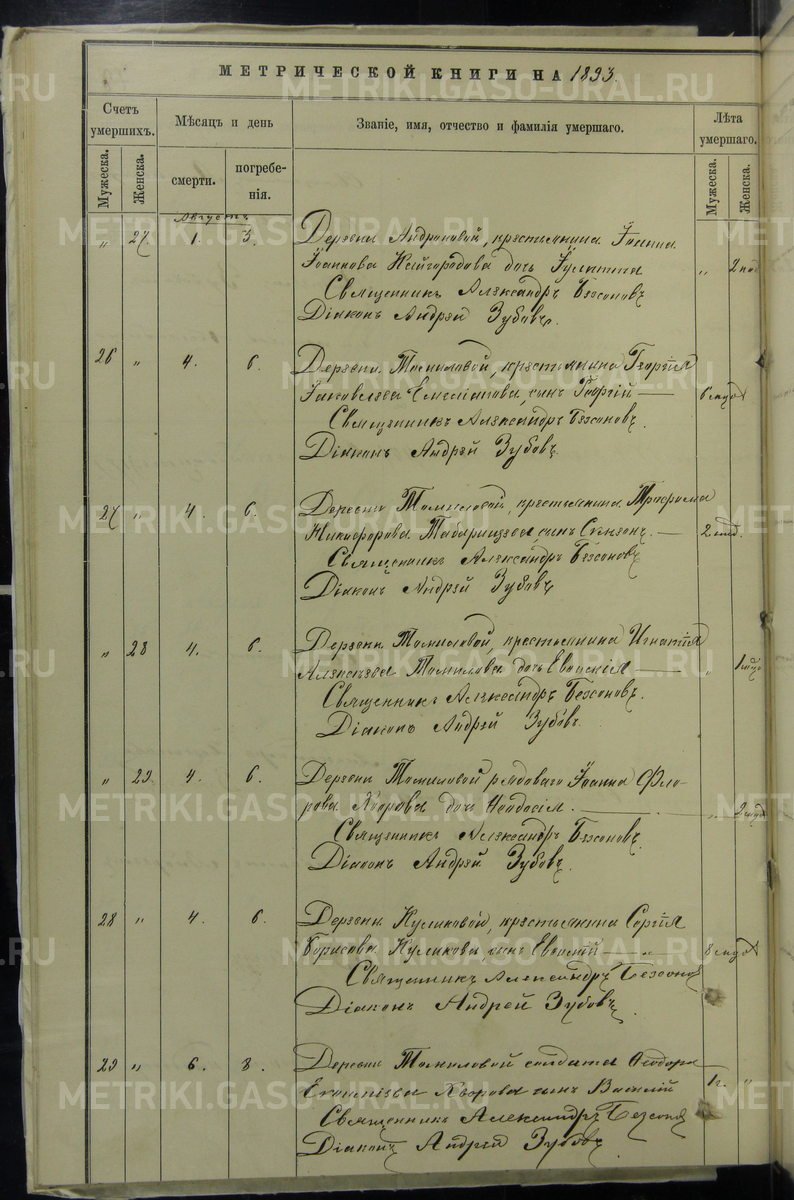 МЕТРИЧЕСКОЙ КНИГИ НА 1893.
Счетъ умершихъ.
Мѣсяцъ и день
Званіе, имя, отчество и фамилія умершаго.
Лѣта умершаго.
Мужеска.
Женска.
смерти.
погребе-
нія.
Мужеска.
Женска.
Августъ
„ 27. 1. 3. Деревни Андроновой, крестьянина Іоанна
Іоаннова Кайгородова дочь Іулитта „ 2 нед
Священникъ Александръ Безсоновъ
Діаконъ Андрей Зубовъ.
26 „ 4. 6. Деревни Томиловой, крестьянина Георгія
Іаковлева Емельянова, сынъ Георгій — 6 мцов
Священникъ Александръ Безсоновъ.
Діаконъ Андрей Зубовъ
27 „ 4. 6. Деревни Томиловой, крестьянина Трофима
Никифорова сынъ — 2 нед.
Священникъ Александръ Безсоновъ
Діаконъ Андрей Зубовъ
„ 28 4. 6. Деревни Томиловой, крестьянина Игнатія
Алексѣева Томилова дочь Евдокія — „
Священникъ Александръ Безсоновъ.
Діаконъ Андрей Зубовъ.
„ 29 4. 6. Деревни Томиловой рядоваго Іоанна Фло-
рова Хворова дочь Ѳеодосія. — „ 2 мцов
Священникъ Александръ Безсоновъ.
Діаконъ Андрей Зубовъ.
28 „ 4. 6. Деревни Куликовой, крестьянина Сергія
Борисова Куликова сынъ — „ 8 мцов
Священникъ Александръ Безсоновъ
Діаконъ Андрей Зубовъ.
29 „ 6. 8. Деревни Томиловой солдата Ѳеодора
Хворова сынъ Василій 1 г. „
Священникъ Александръ Безсоновъ
Діаконъ Андрей Зубовъ
METRIKI.GASO-URAL.RU